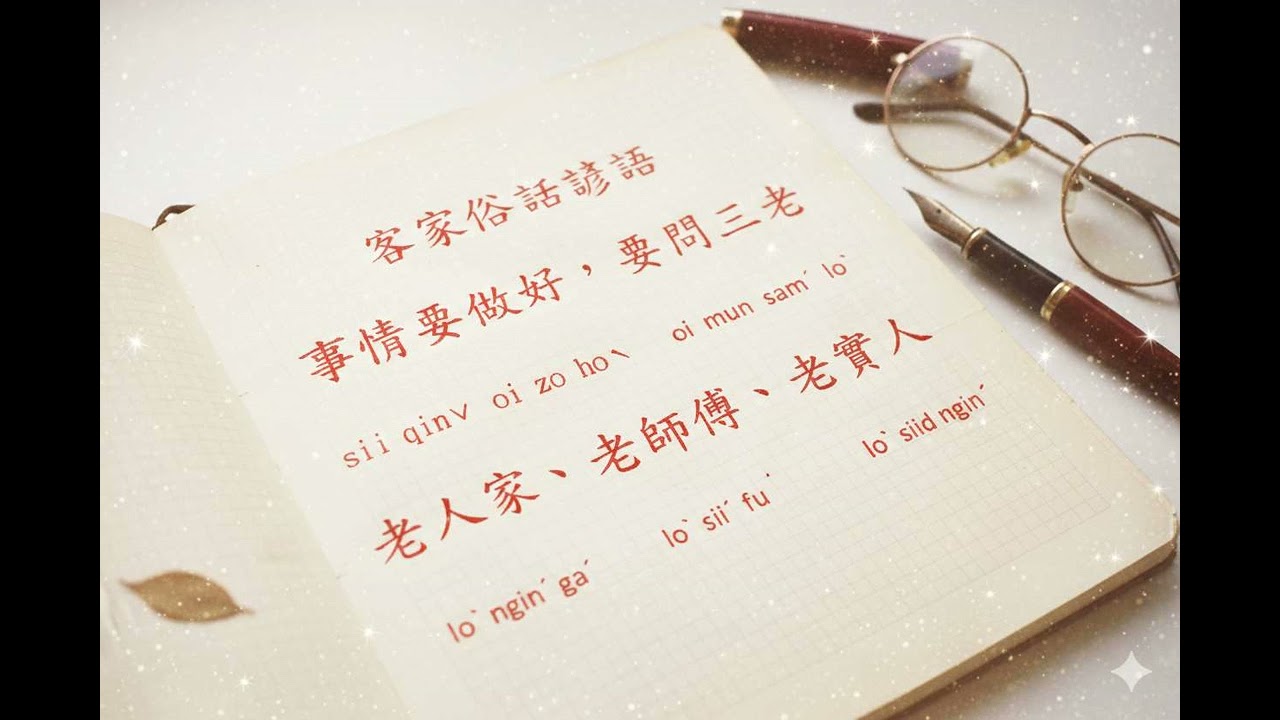 客家俗話諺語
事情要做好，要問三老
sii qinˇ oi zo hoˋ oi mun samˊ loˋ
老人家、老師傅、老實人
loˋ nginˊ gaˊ loˋ siiˊ fu˙ loˋ siid nginˊ